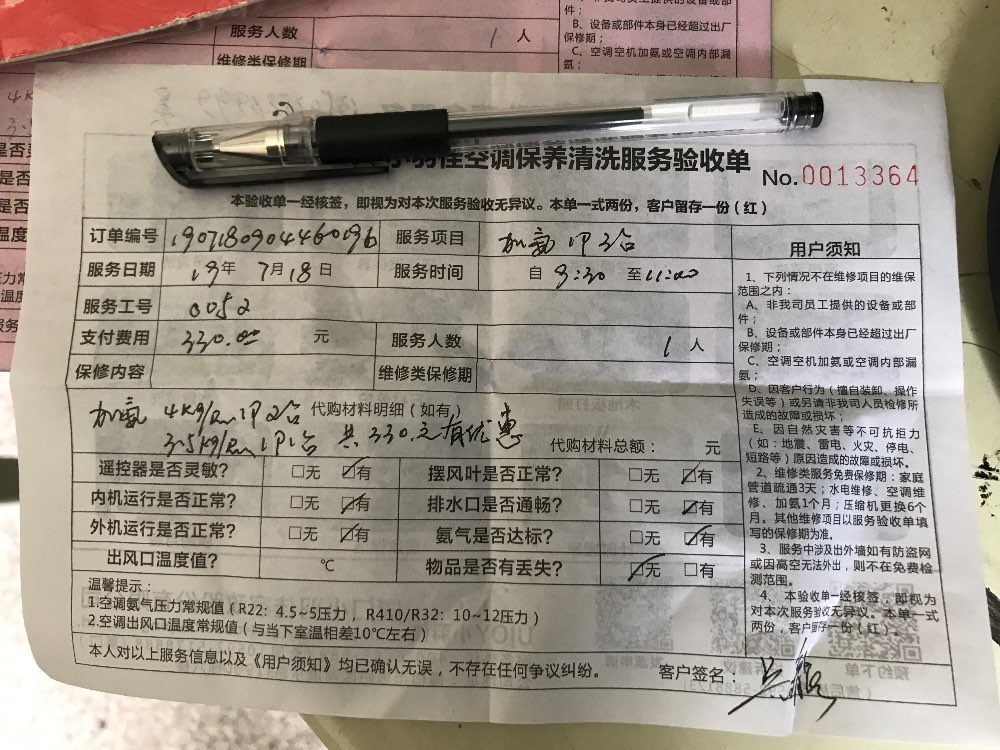 服务人数 1 人
维修类保修期
部件；
B、设备或部件本身已经超过出厂
保修期；
C、空调空机加氨或空调内部漏
氨；
性空调保养清洗服务验收单
No.0013364
本验收单一经核签，即视为对本次服务验收无异议。本单一式两份，客户留存一份（红）
订单编号 1907180904460196 服务项目 加氨 1P 2台
服务日期 19年 7月18日 服务时间 自 9:30 至11:00
服务工号 0052
支付费用 330.00 元 服务人数 1 人
保修内容 维修类保修期
加氨 4kg/ 1P 2台 代购材料明细（如有，）
3.5kg/ 1P 1台 共 330元有优惠 代购材料总额： 元
遥控器是否灵敏？ □无 ☑有 摆风叶是否正常？ □无 ☑有
内机运行是否正常？ □无 ☑有 排水口是否通畅？ □无 ☑有
外机运行是否正常？ □无 ☑有 氨气是否达标？ □无 ☑有
出风口温度值？ ℃ 物品是否有丢失？ ☑无 □有
温馨提示：
1.空调氨气压力常规值（R22：4.5~5压力，R410/R32：10~12压力）
2.空调出风口温度常规值（与当下室温相差10℃左右）
本人对以上服务信息以及《用户须知》均已确认无误，不存在任何争议纠纷。 客户签名：
用户须知
1、下列情况不在维修项目的维保
范围之内：
A、非我司员工提供的设备或部
件；
B、设备或部件本身已经超过出厂
保修期；
C、空调空机加氨或空调内部漏
氨；
D、因客户行为（擅自装卸、操作
失误等）或另请非我司人员检修所
造成的故障或损坏；
E、因自然灾害等不可抗拒力
（如：地震、雷电、火灾、停电、
短路等）原因造成的故障或损坏。
2、维修类服务免费保修期：家庭
管道疏通3天；水电维修、空调维
修、加氨1个月；压缩机更换6个
月。其他维修项目以服务验收单填
写的保修期为准。
3、服务中涉及出外墙如有防盗网
或因高空无法外出，则不在免费检
测范围。
4、本验收单一经核签，即视为
对本次服务验收无异议。本单一式
两份，客户留存一份（红）。